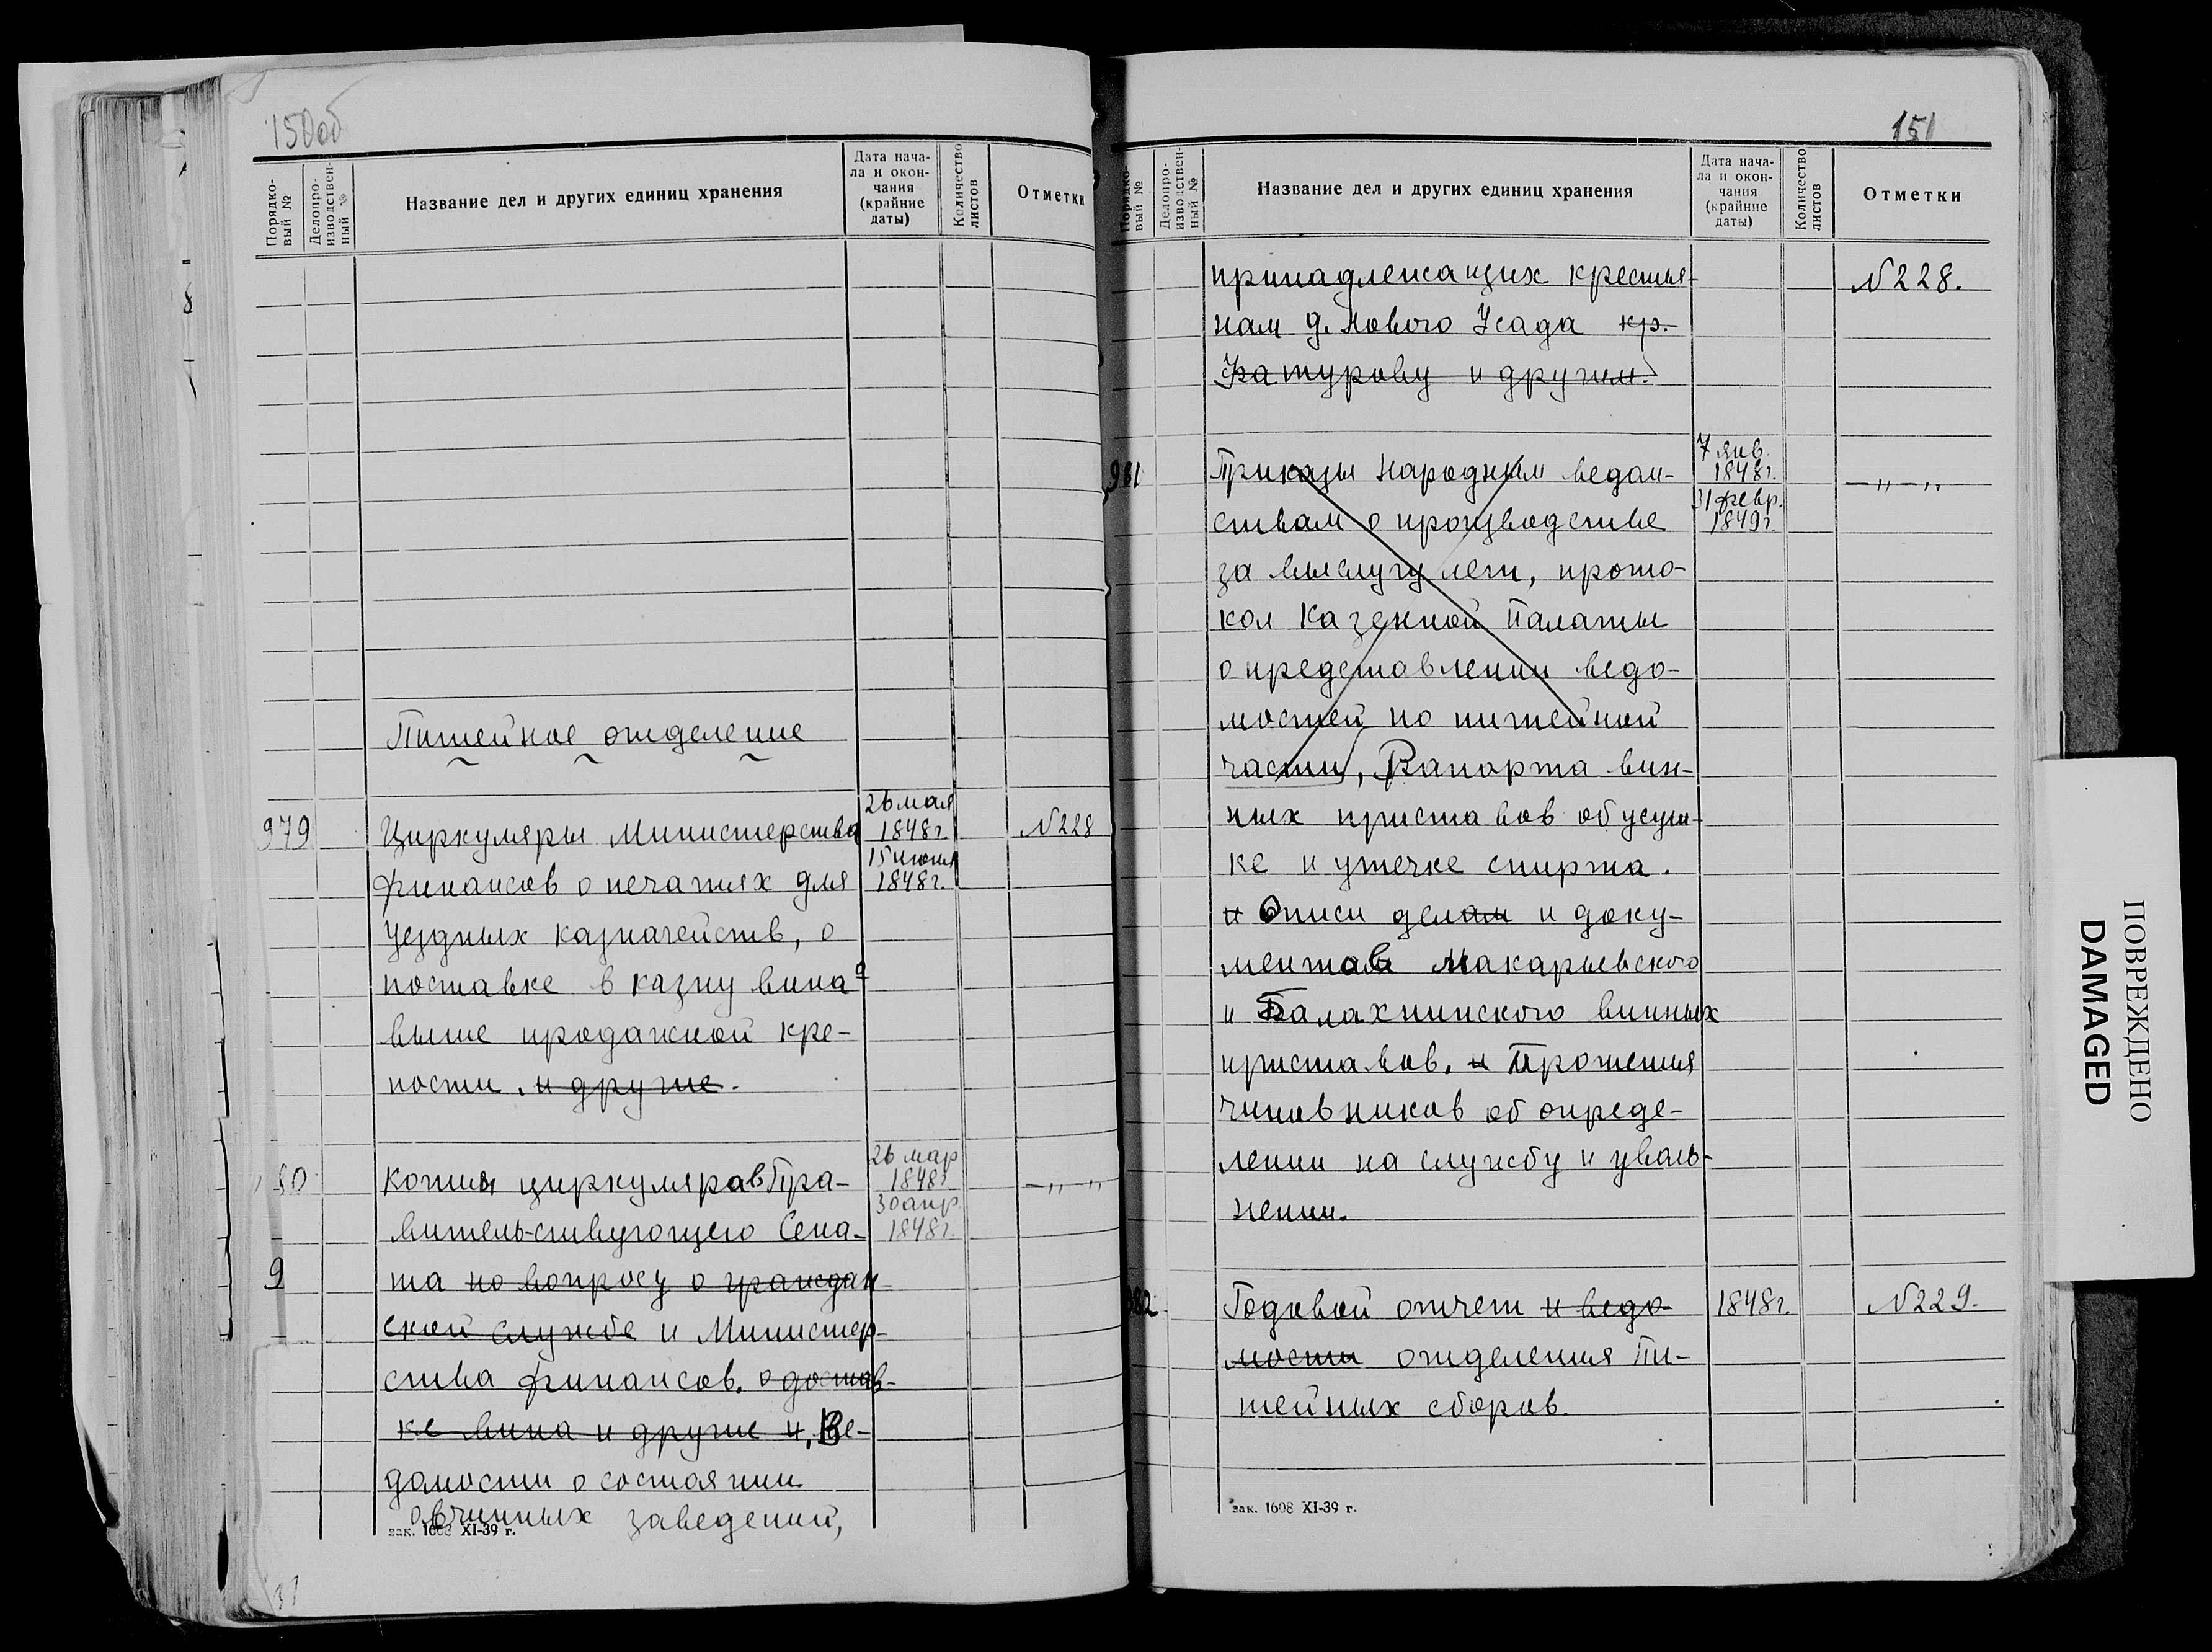 150об
Порядко-
вый №
Делопро-
изводствен-
ный №
Название дел и других единиц хранения
Дата нача-
ла и окон-
чания
(крайние
даты)
Количество
листов
Отметки
Питейное отделение
979 Циркуляры Министерства 26 мая 1848г. № 228
финансов о печатях для 15 июня 1848г.
уездных казначейств, о
поставке в казну вина
выше продажной кре-
пости. и другие.
80 Копии циркуляров Пра- 26 мар 1848г. —„—„
вительствующего Сена- 30 апр 1848г.
9 та по вопросу о граждан-
ской службе и Министер-
ства финансов. о достав-
ке вина и другие и, Ве-
домости о состоянии
овчинных заведений,
зак. 1608 XI-39 г.
151
Порядко-
вый №
Делопро-
изводствен-
ный №
Название дел и других единиц хранения
Дата нача-
ла и окон-
чания
(крайние
даты)
Количество
листов
Отметки
принадлежащих крестья- № 228.
нам д. Нового Усада кр.
Фатурову и другим.
981 Приказы Народным ведом- 7 янв. 1848г. —„—„
ствам о производстве 31 февр. 1849г.
за выслугу лет, прото-
кол Казенной Палаты
о представлении ведо-
мостей по питейной
части, Рапорта вин-
ных приставов об усуш-
ке и утечке спирта.
и Описи делам и доку-
ментов Макарьевского
и Балахнинского винных
приставов. и Прошения
чиновников об опреде-
лении на службу и уволь-
нении.
982 Годовой отчет и ведо- 1848г. № 229.
мости отделения Пи-
тейных сборов.
зак. 1608 XI-39 г.
ПОВРЕЖДЕНО
DAMAGED